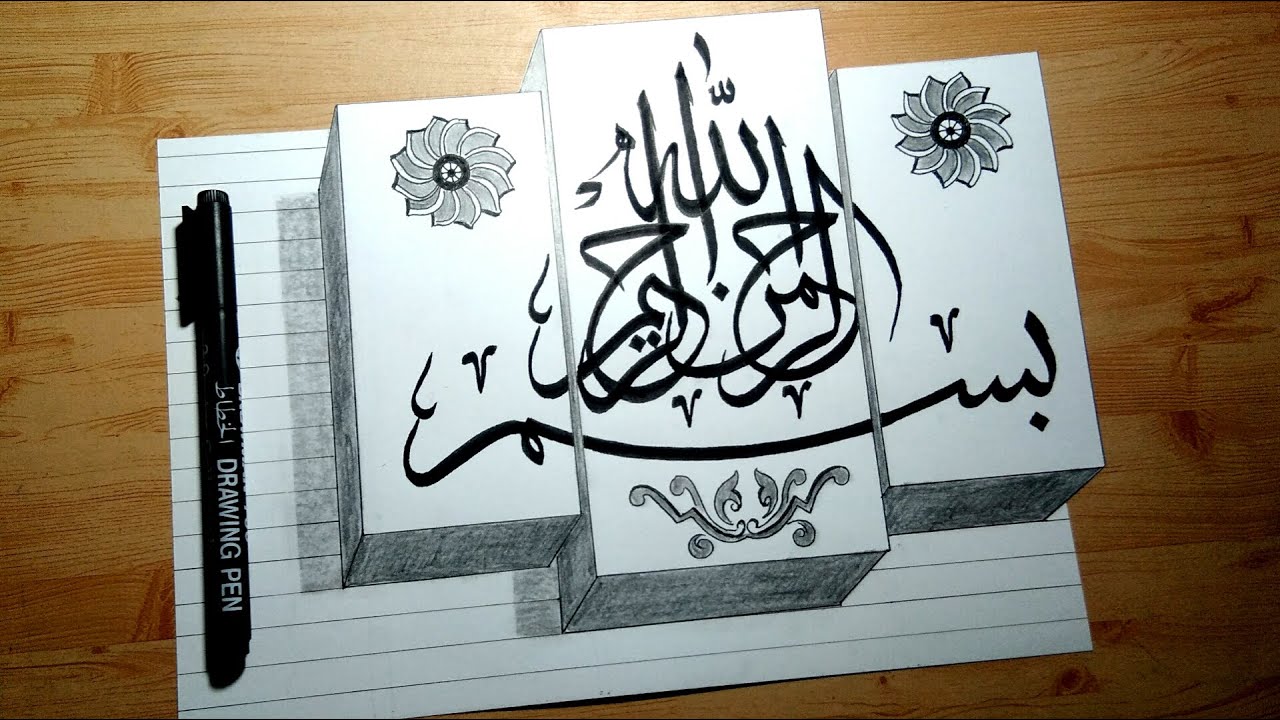 بسم
الله
الرحمن الرحيم
الخطاط DRAWING PEN